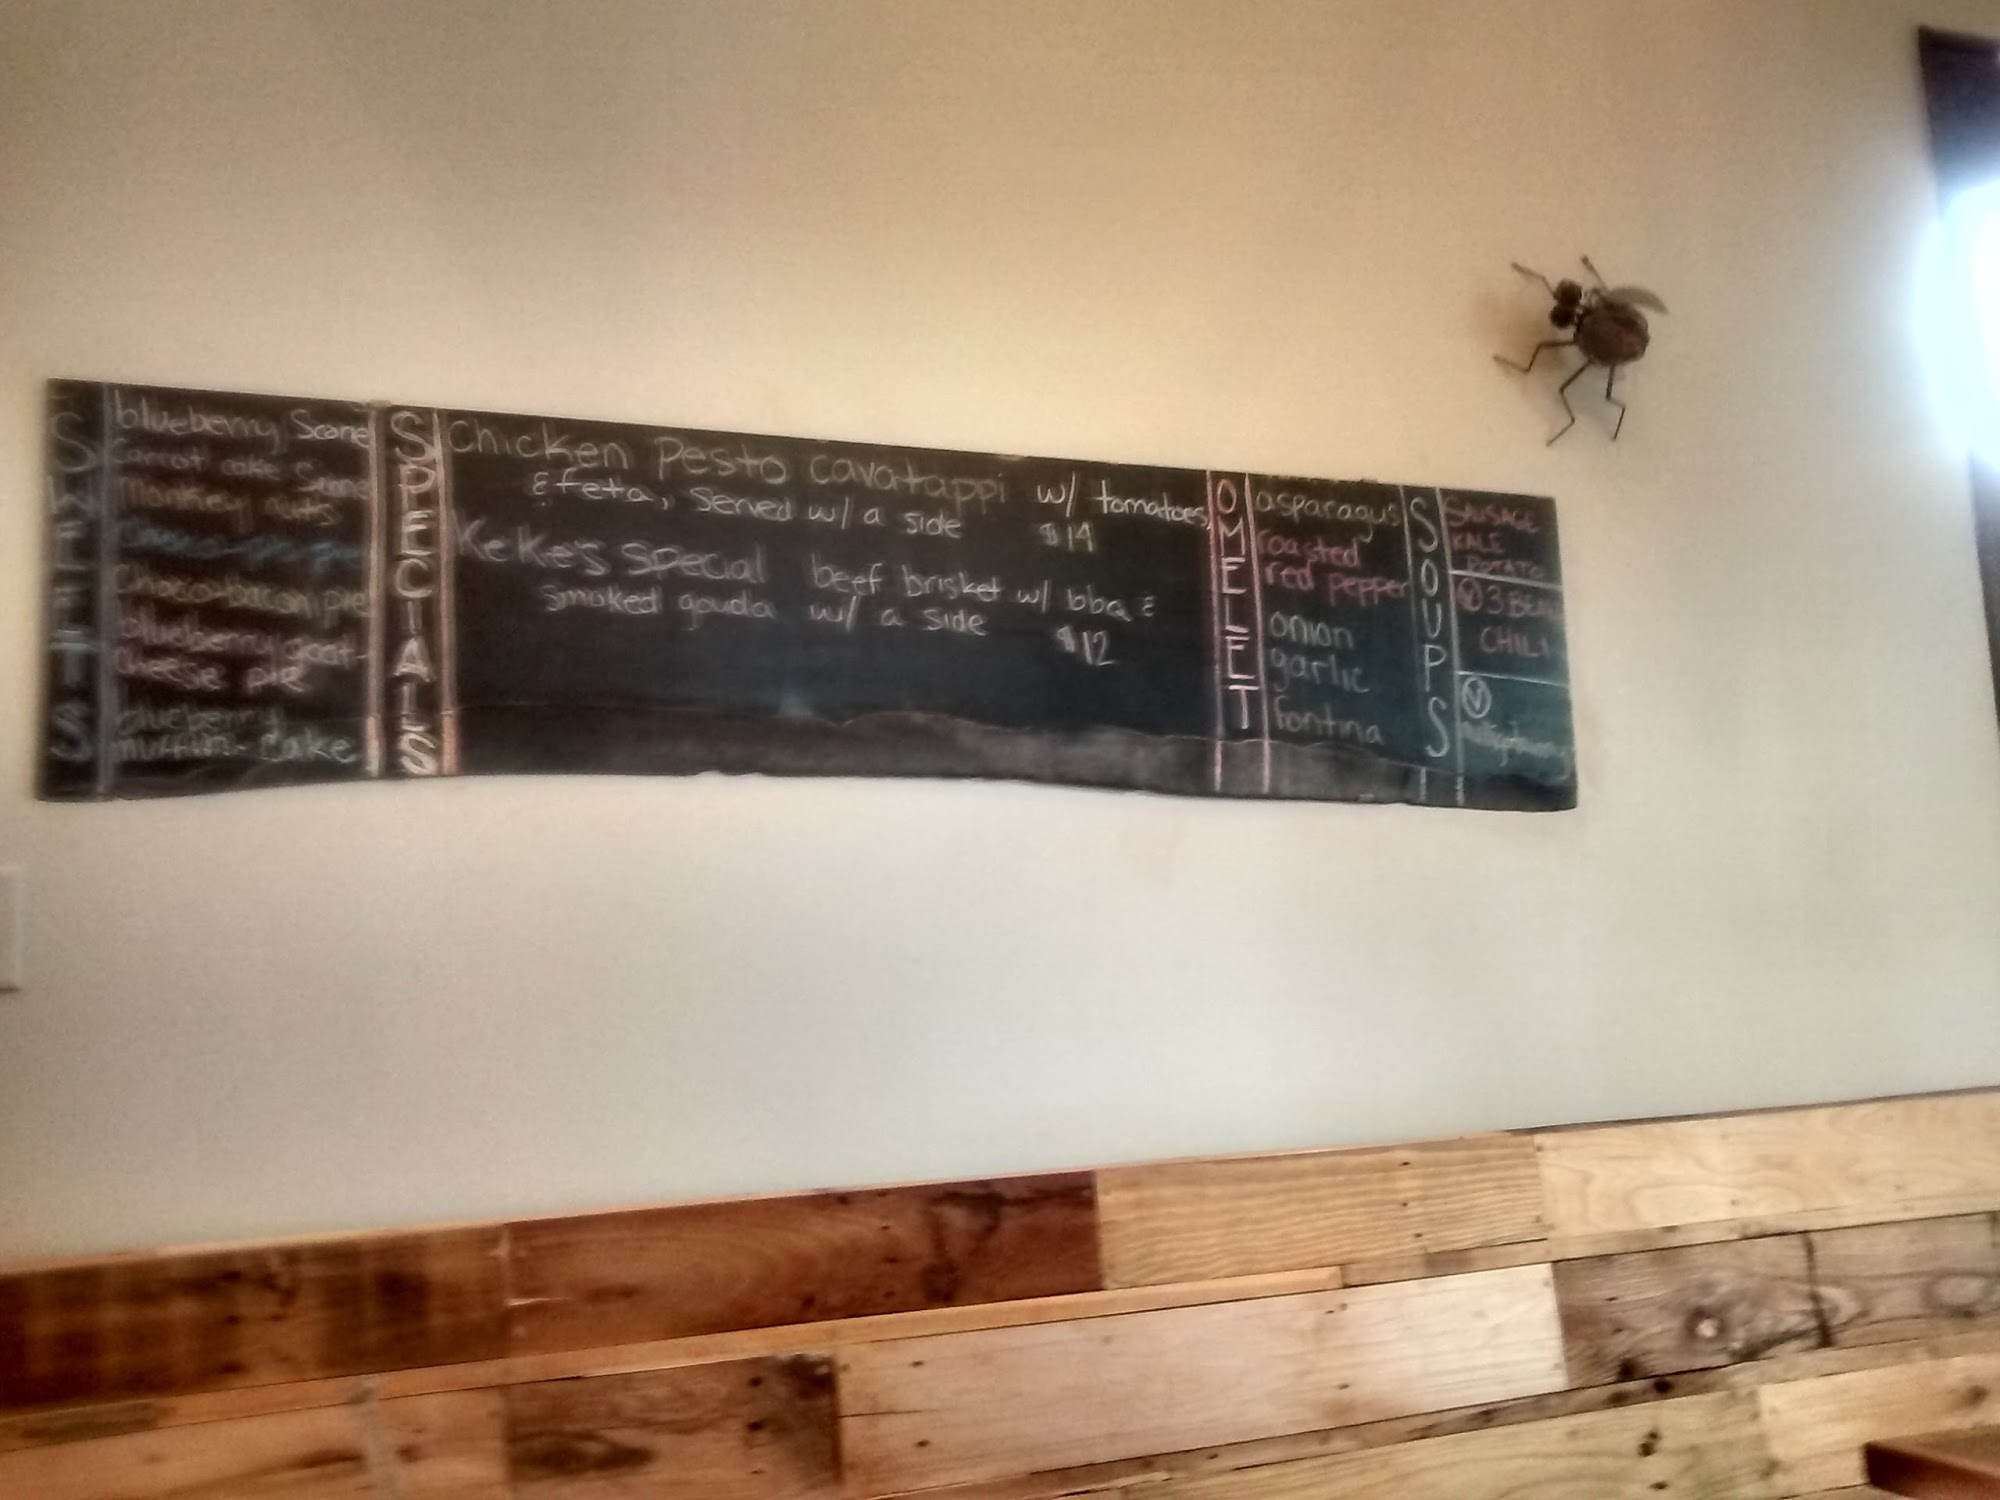 SWEETS
blueberry Scone
Carrot cake Scone
Monkey nuts
Choco-bacon pie
blueberry goat-
cheese pie
blueberry
muffin-cake
SPECIALS
Chicken Pesto cavatappi w/ tomatoes,
& feta, served w/ a side $14
KeKe's Special beef brisket w/ bbq &
smoked gouda w/ a side $12
OMELET
asparagus
roasted
red pepper
onion
garlic
fontina
SOUPS
SAUSAGE
KALE
POTATO
V 3 BEAN
CHILI
V